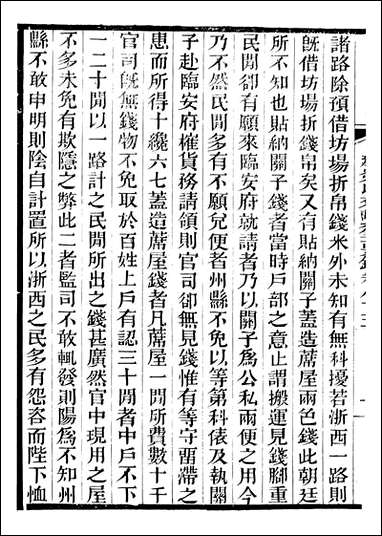 諸路除預借坊場折帛錢米外未知有無科擾若浙西一路則
既借坊場折錢帛矣又有貼納關子蓋造蓆屋兩色錢此朝廷
所不知也貼納關子錢者當時戶部之意止謂搬運見錢腳重
民間卻有願來臨安府就請者乃以關子為公私兩便之用今
乃不然民間多有不願兌便者州縣不免以等第科俵及執關
子赴臨安府榷貨務請領則官司卻無見錢惟有等守畱滯之
患而所得十纔六七蓋造蓆屋錢者凡蓆屋一間所費數十千
官司既無錢物不免取於百姓上戶有認三十間者中戶不下
一二十間以一路計之民間所出之錢甚廣然官中現用之屋
不多未免有欺隱之弊此二者監司不敢輒發則陽為不知州
縣不敢申明則陰自計置所以浙西之民多有怨咨而陛下恤